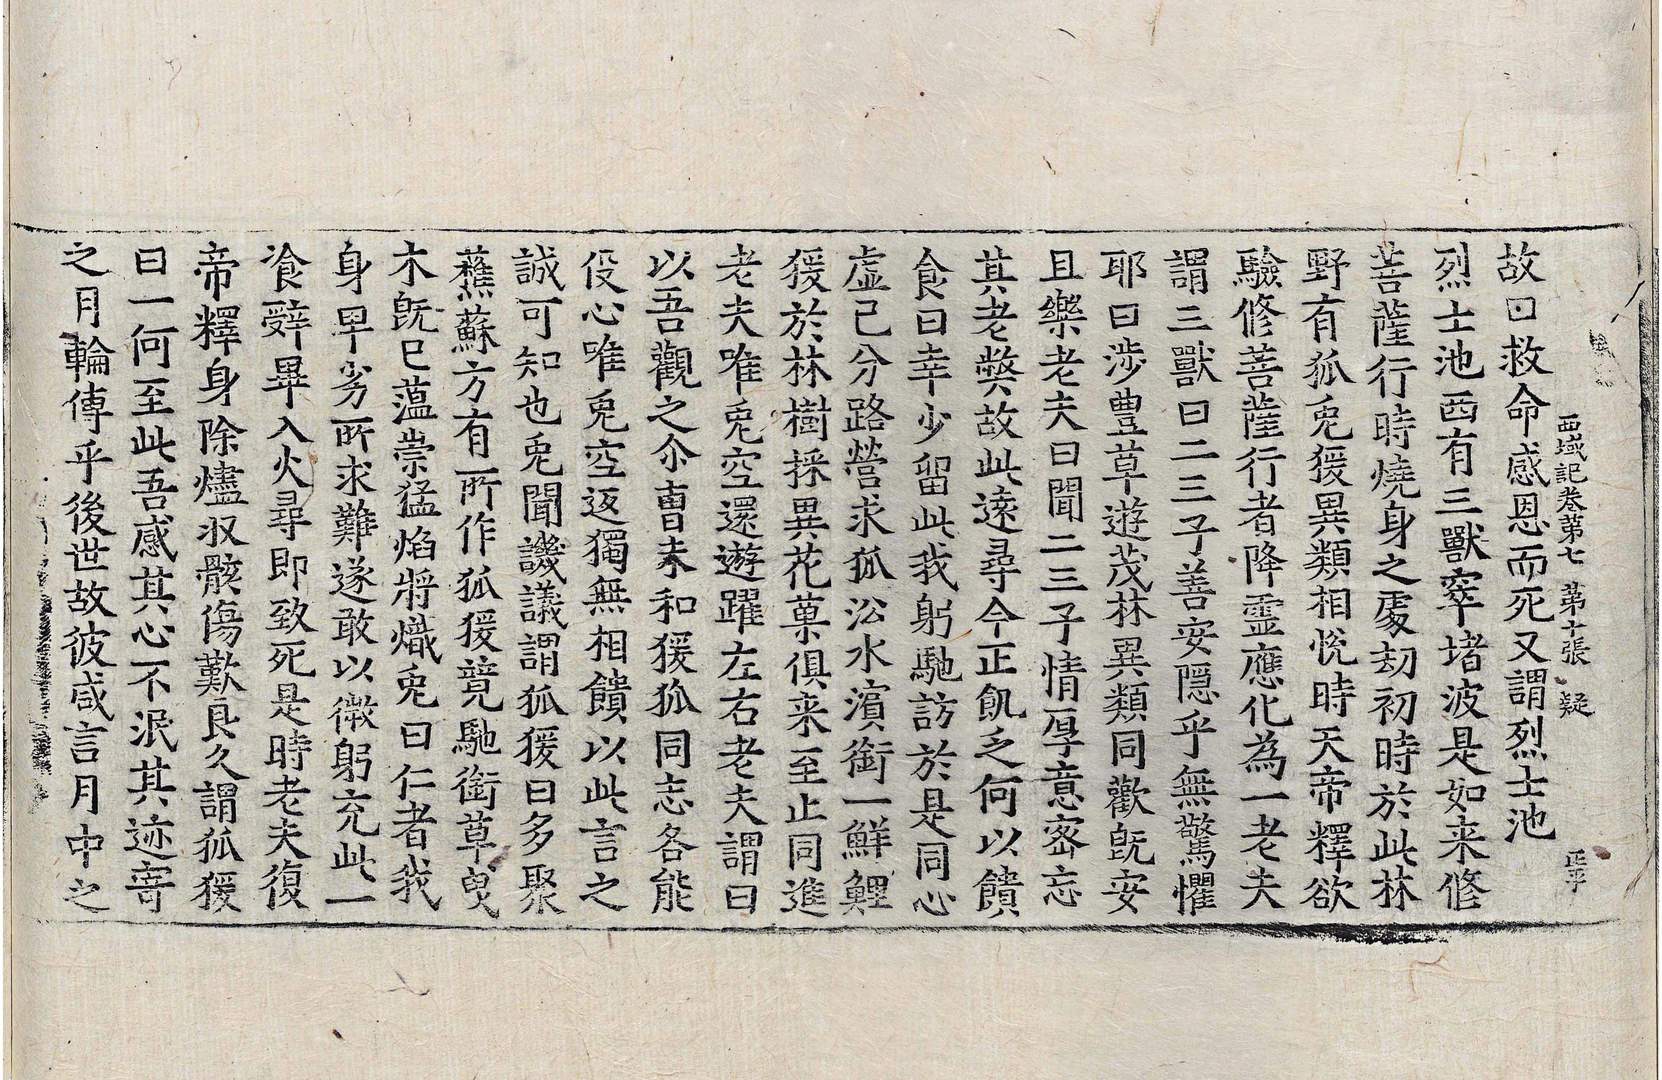 西域記卷第七 第十張 疑
故曰救命感恩而死又謂烈士池
烈士池西有三獸窣堵波是如来修
菩薩行時燒身之處劫初時於此林
野有狐兎猨異類相悅時天帝釋欲
驗修菩薩行者降靈應化為一老夫
謂三獸曰二三子善安隱乎無驚懼
耶曰涉豊草遊茂林異類同歡旣安
且樂老夫曰聞二三子情厚意密忘
其老弊故此遠尋今正飢乏何以饋
食曰幸少留此我躬馳訪於是同心
虛己分路營求狐沿水濱銜一鮮鯉
猨於林樹採異花菓俱来至止同進
老夫唯兎空還遊躍左右老夫謂曰
以吾觀之尒曹未和猨狐同志各能
役心唯兎空返獨無相饋以此言之
誠可知也兎聞譏議謂狐猨曰多聚
蕉蘇方有所作狐猨競馳銜草曳
木旣已薀崇猛焰將熾兎曰仁者我
身卑劣所求難遂敢以微躬充此一
飡辭畢入火尋即致死是時老夫復
帝釋身除燼收骸傷歎良久謂狐猨
曰一何至此吾感其心不泯其迹寄
之月輪傳乎後世故彼咸言月中之